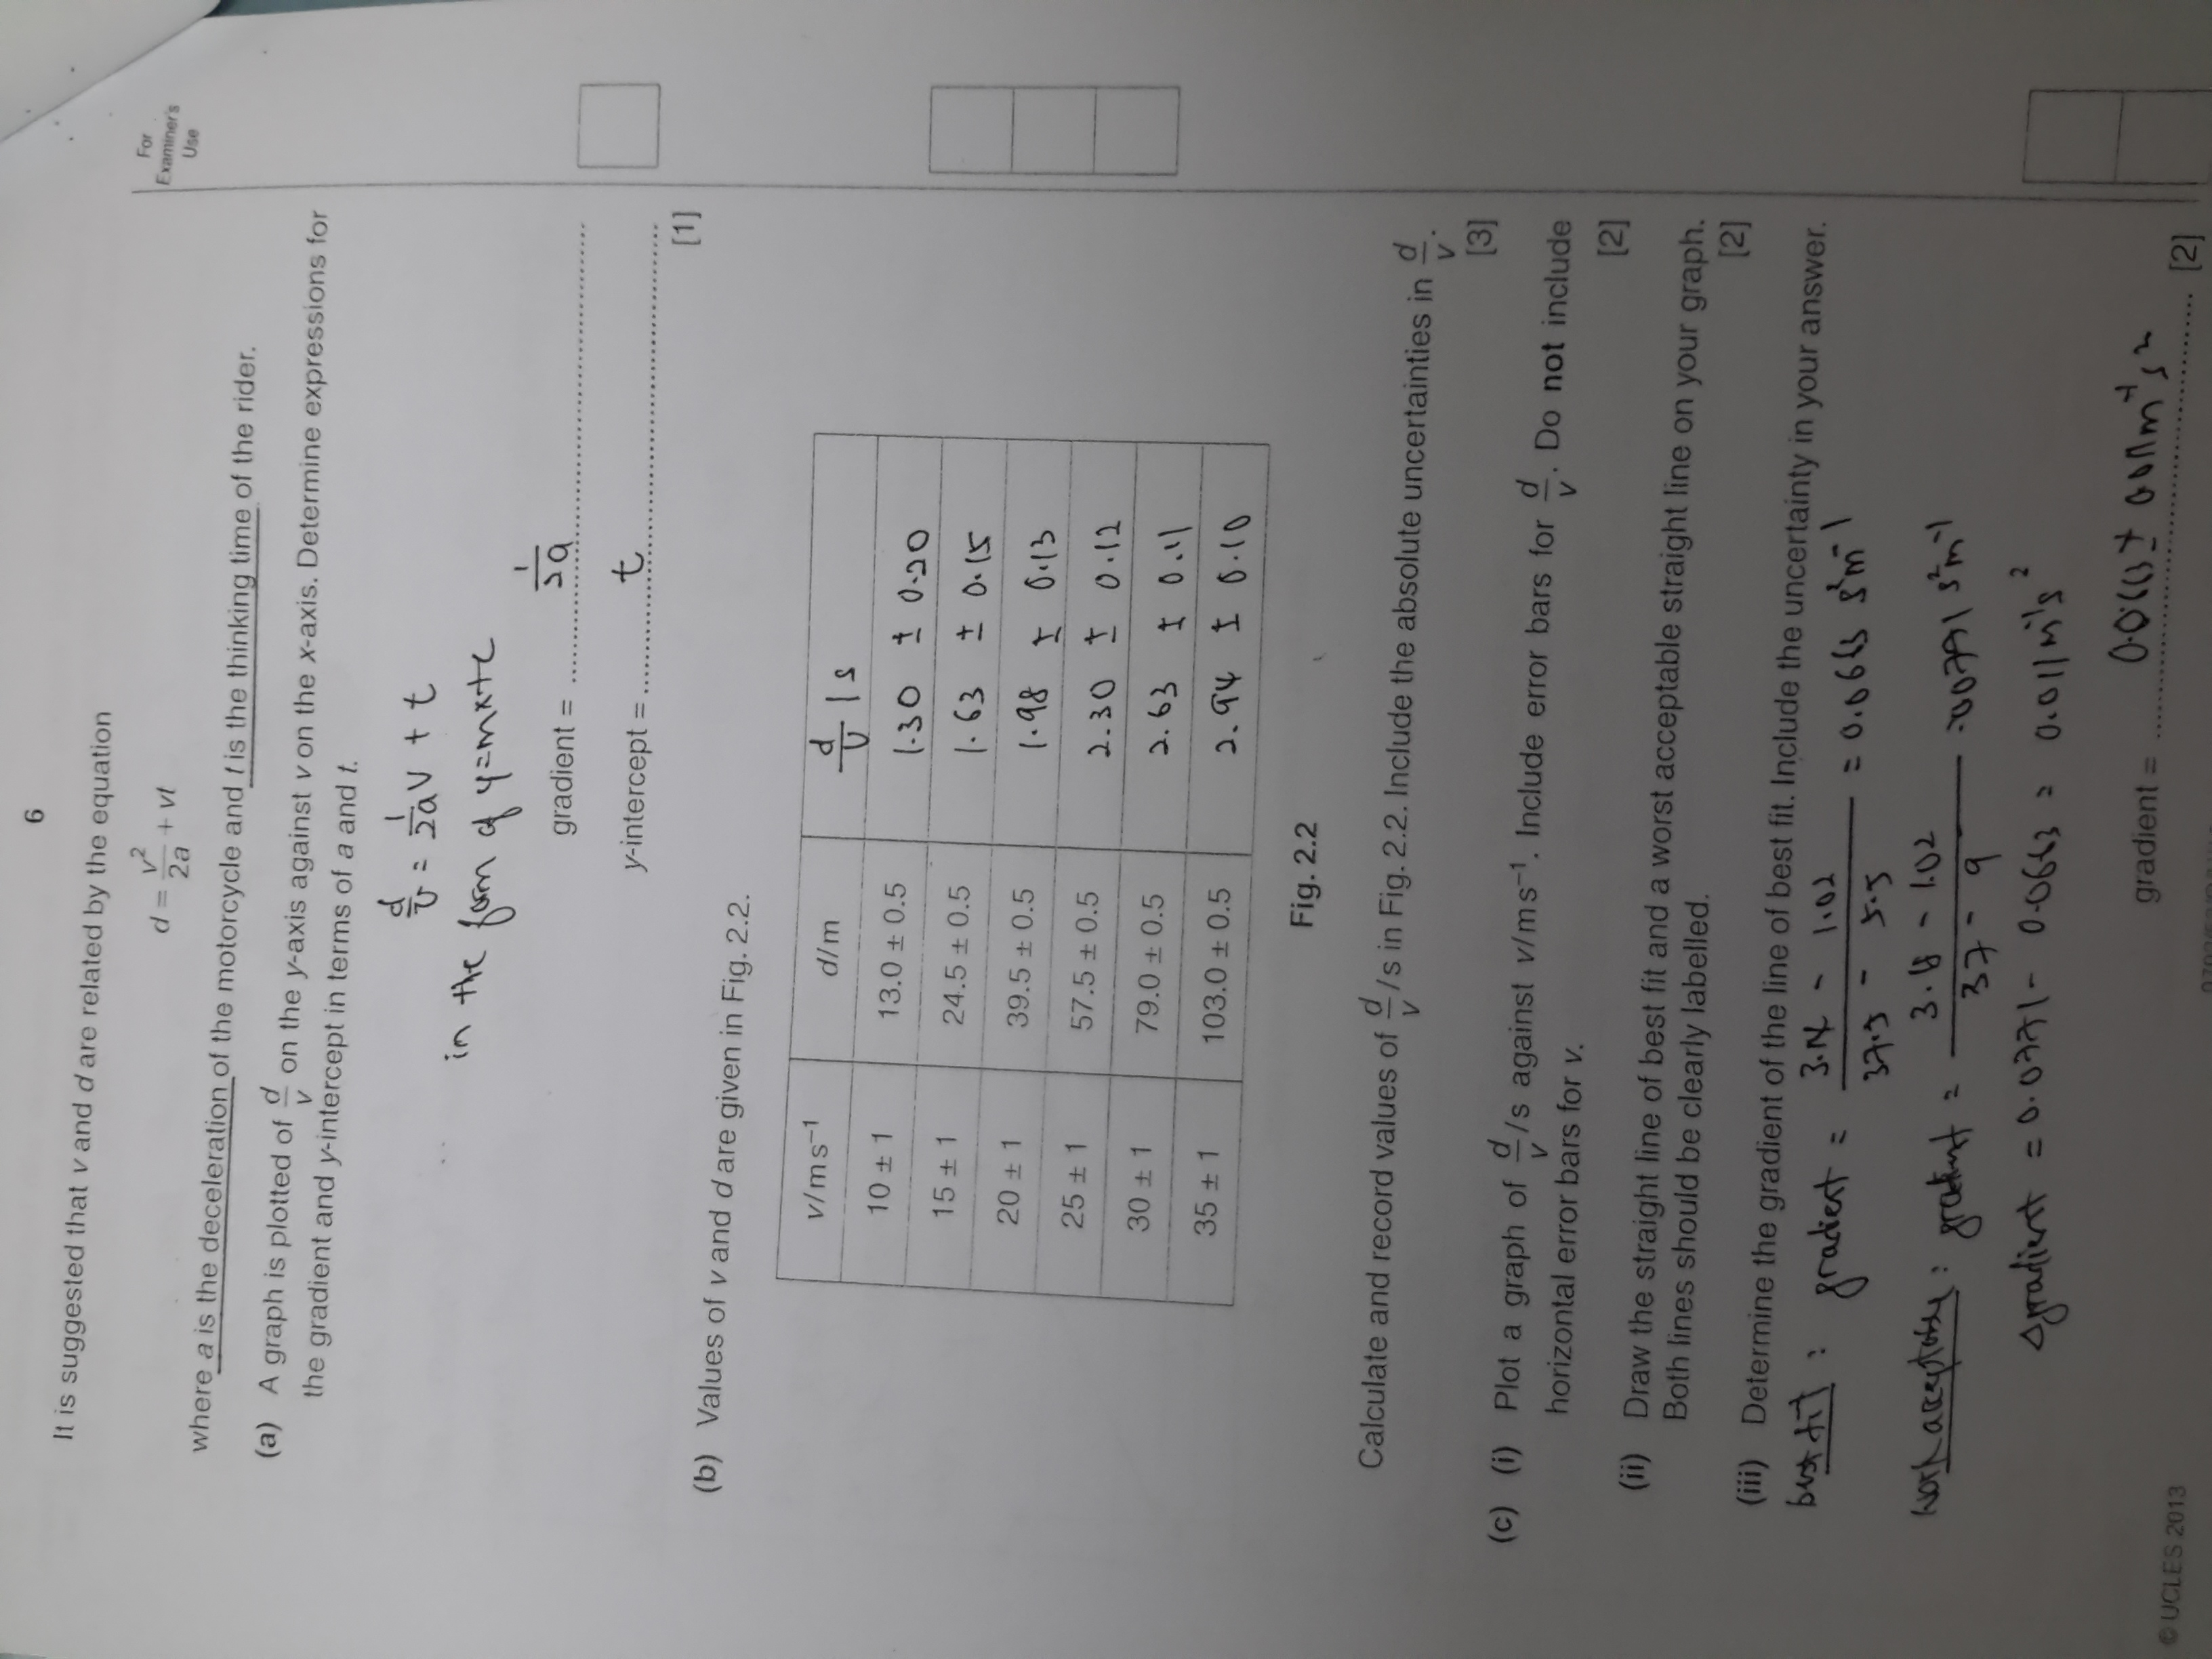 6
It is suggested that v and d are related by the equation
d = v²/2a + vt
For
Examiner's
Use
where a is the deceleration of the motorcycle and t is the thinking time of the rider.
(a) A graph is plotted of d/v on the y-axis against v on the x-axis. Determine expressions for
the gradient and y-intercept in terms of a and t.
d/v = 1/2a v + t
in the form of y=mx+c
gradient = 1/2a
y-intercept = t
[1]
(b) Values of v and d are given in Fig. 2.2.
v/ms⁻¹ d/m d/v / s
10 ± 1 13.0 ± 0.5 1.30 ± 0.20
15 ± 1 24.5 ± 0.5 1.63 ± 0.15
20 ± 1 39.5 ± 0.5 1.98 ± 0.13
25 ± 1 57.5 ± 0.5 2.30 ± 0.12
30 ± 1 79.0 ± 0.5 2.63 ± 0.11
35 ± 1 103.0 ± 0.5 2.94 ± 0.10
Fig. 2.2
Calculate and record values of d/v /s in Fig. 2.2. Include the absolute uncertainties in d/v.
[3]
(c) (i) Plot a graph of d/v /s against v/ms⁻¹. Include error bars for d/v. Do not include
horizontal error bars for v.
[2]
(ii) Draw the straight line of best fit and a worst acceptable straight line on your graph.
Both lines should be clearly labelled.
[2]
(iii) Determine the gradient of the line of best fit. Include the uncertainty in your answer.
best fit : gradient = 3.14 - 1.02 / 37.5 - 5.5 = 0.0663 s²m⁻¹
: gradient = - 1.02 / 37 - 9 s²m⁻¹
Δgradient = - 0.0663 = 0.011 m⁻¹s²
gradient = 0.0663 ± 0.011 m⁻¹s²
[2]
© UCLES 2013